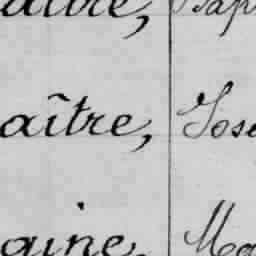 aître, Bap
aître, Jose
aine, Ma